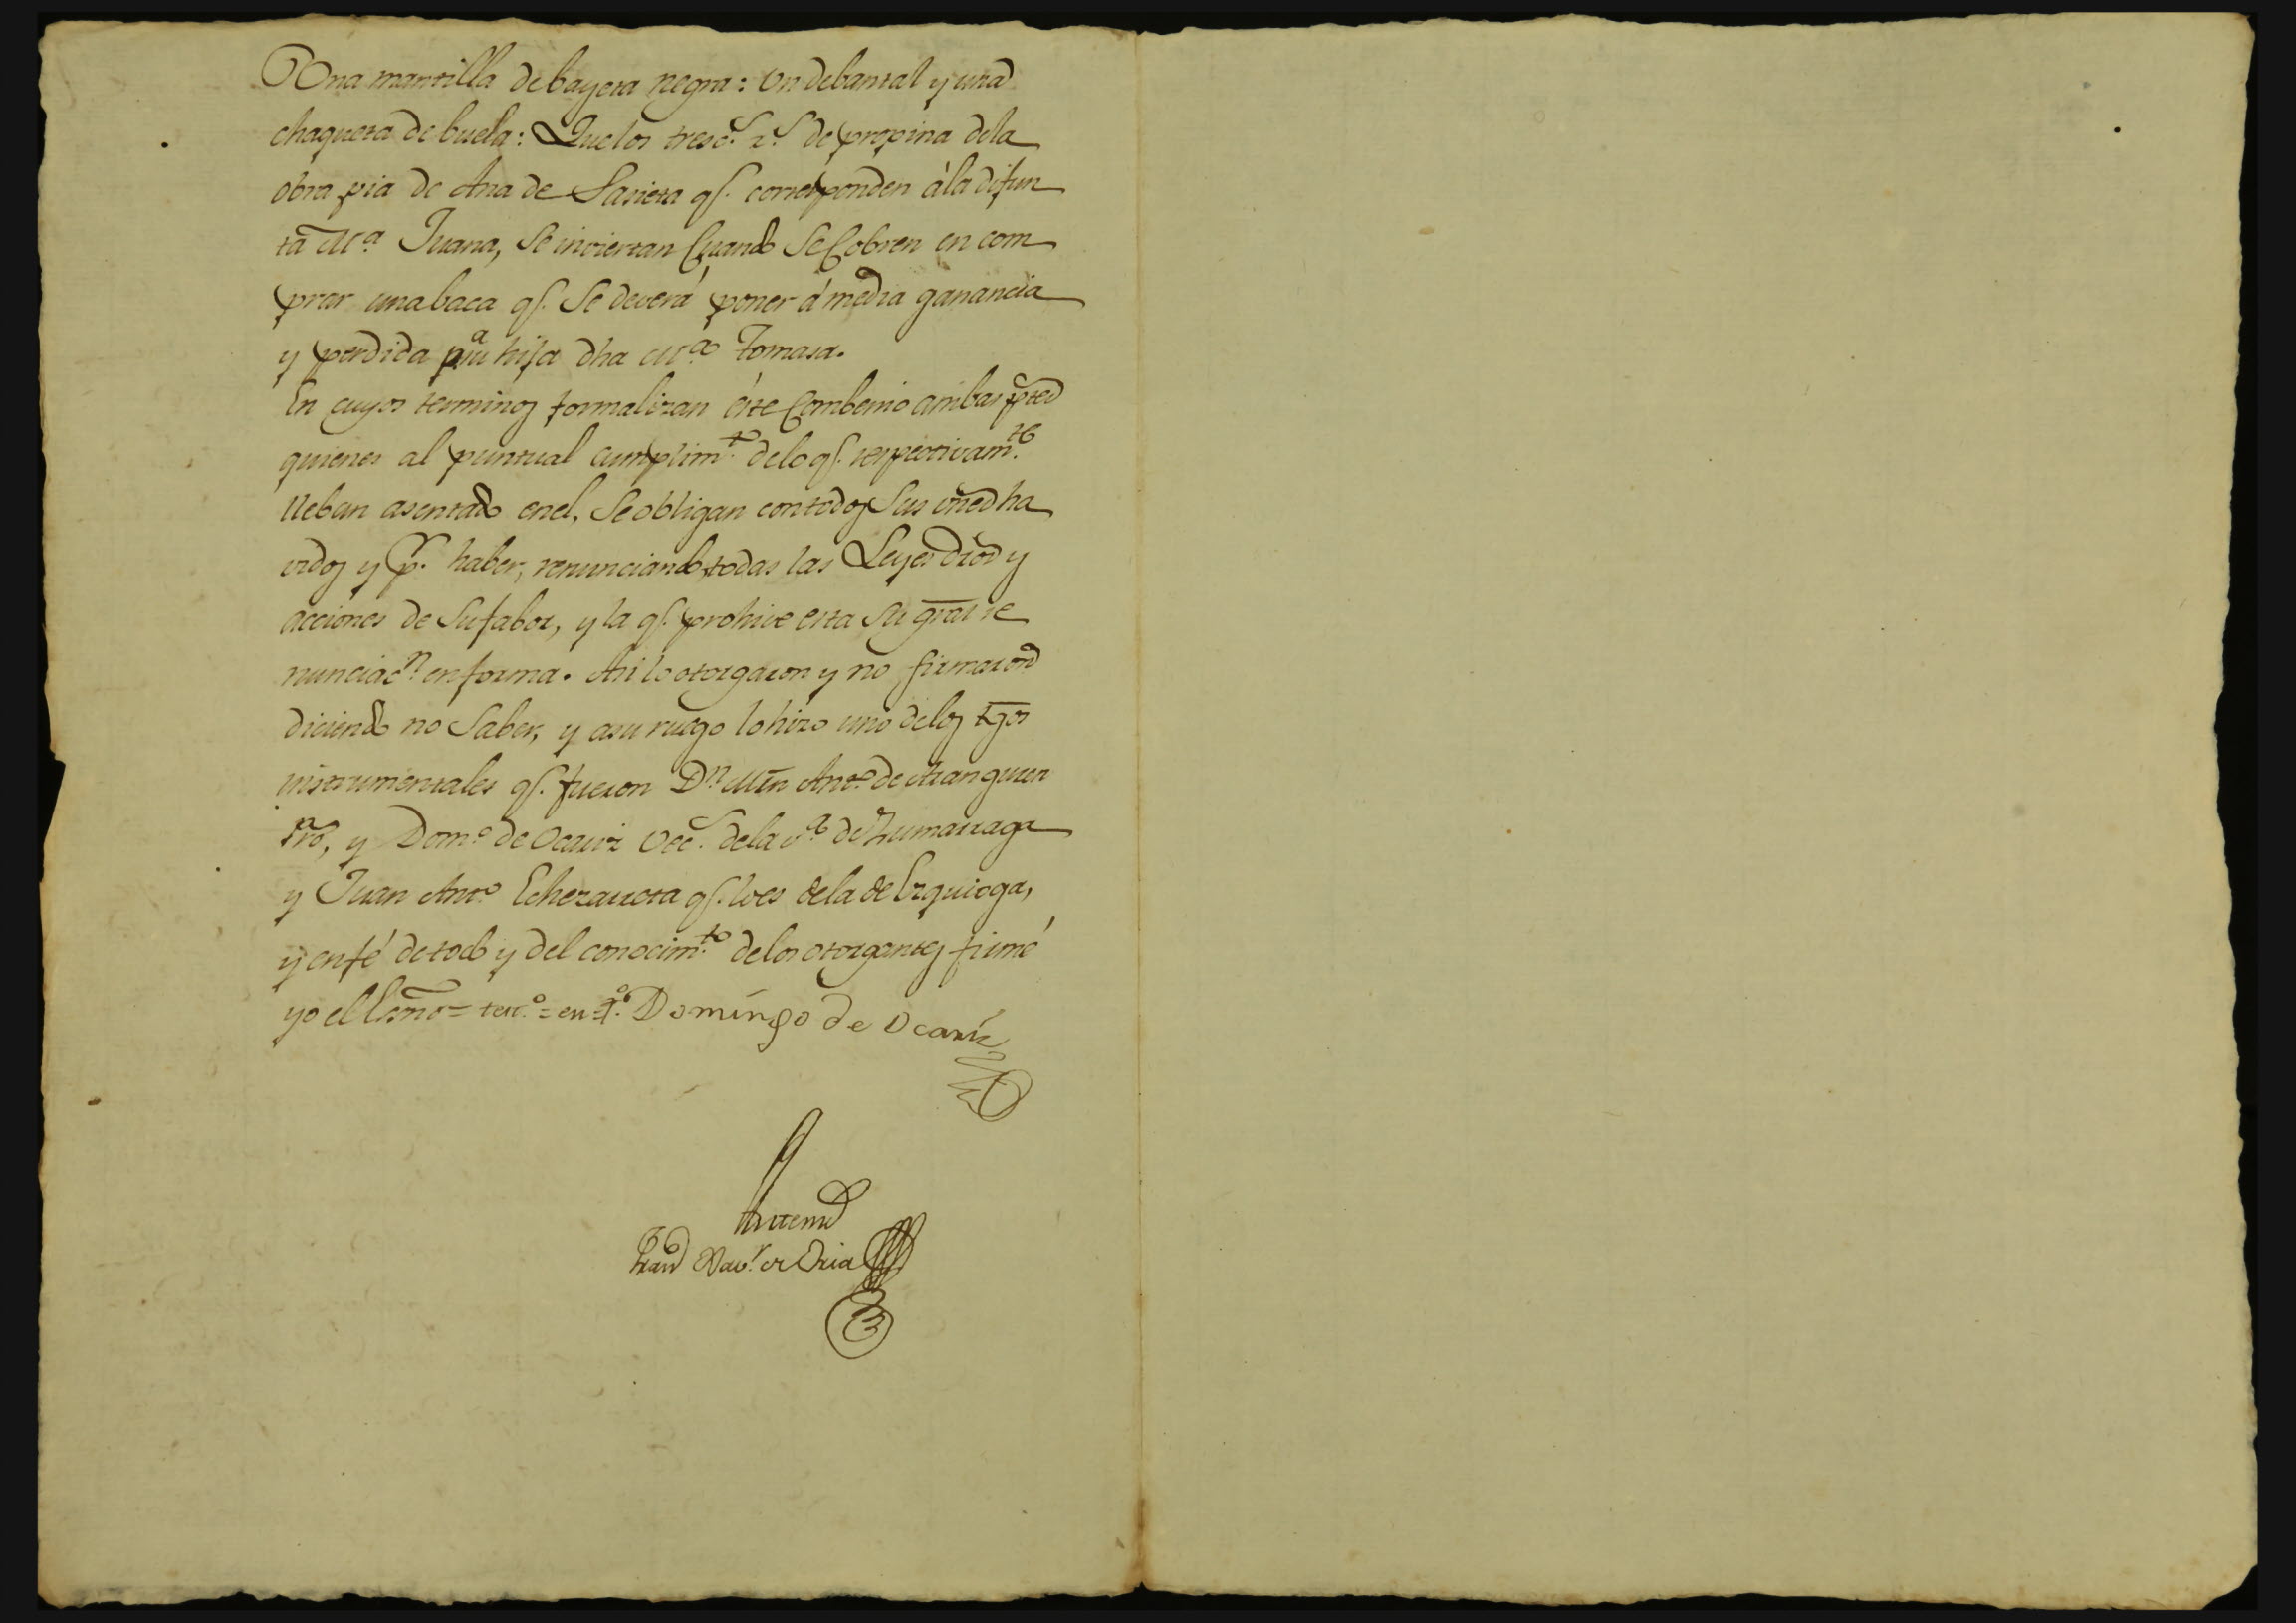 Una mantilla de bayeta negra: Un debantal y una
chaqueta de buela: Que los tresc.s r.s de propina dela
obra pia de Ana de Sarieta q.e corresponden á la difun
ta M.a Juana, Se inviertan Cuando Se Cobren en com
prar una baca q.e Se deverá poner á media ganancia
y perdida p.a su hija dha M.a Tomasa.
En cuyos terminos formalizan éste Combenio ambas ptes
quienes al puntual cumplim.to delo q.e respectivam.te
lleban asentado enel, Se obligan con todos Sus vnes ha
vidos y p.r haber, renunciando todas las Leyes dros y
acciones de Su fabor, y la q.e prohive esta Su gral re
nunciac.n en forma. Asi lo otorgaron y no firmaron
diciendo no Saber, y asu ruego lo hizo uno delos tgos
instrumentales q.e fueron D.n Mrn Ant.o de Aranguren
Pro, y Dom.o de Ocariz Vec.s dela v.a de Zumarraga
y Juan Ant.o Echezarreta q.e lo es dela de Ezquioga,
y en fé de todo y del conocim.to delos otorgantes firmé
yo el Esno = Domingo de Ocariz
Antemi
Fran.co Xav.r de Oria